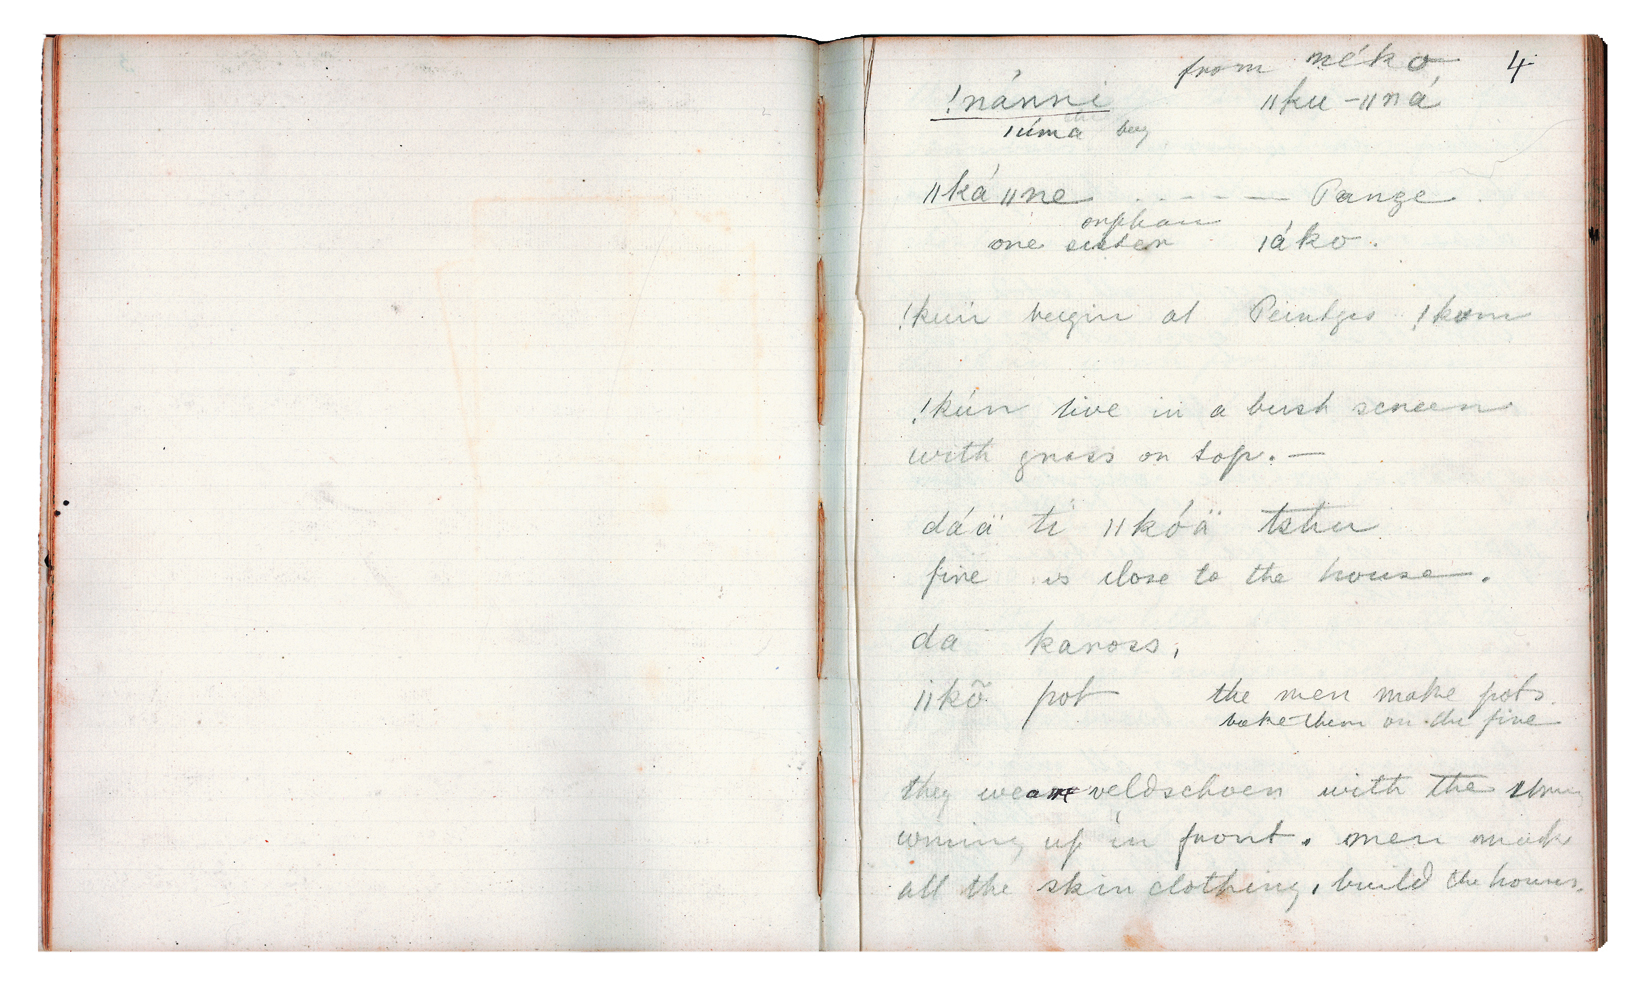 from néko 4
!nánni ǁku-ǁná
ǀúma the boy
ǁkáǁne - - - - - Pange
orphan
one sister ǀáko.
!kun begin at !kum
!kún live in a bush screen
with grass on top. —
dáä ti ǁkóä tshu
fire is close to the house.
da kaross,
ǁkõ pot the men make pots
bake them on the fire
they wear veldschoen with the
coming up in front. men mak
all the skin clothing, build the houses.